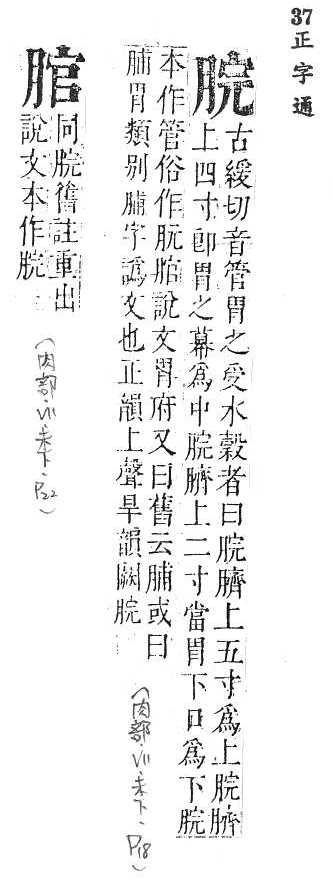 37正字通
脘
古緩切音管胃之受水穀者曰脘臍上五寸爲上脘臍
上四寸卽胃之幕爲中脘臍上二寸當胃下口爲下脘
本作管俗作脘䐴說文胃府又曰舊云脯或曰
脯胃類別脯字譌文也正韻上聲旱韻闕脘
（肉部·未下·P18）
䐴
同脘舊註重出
說文本作脘
（肉部·未下·P22）